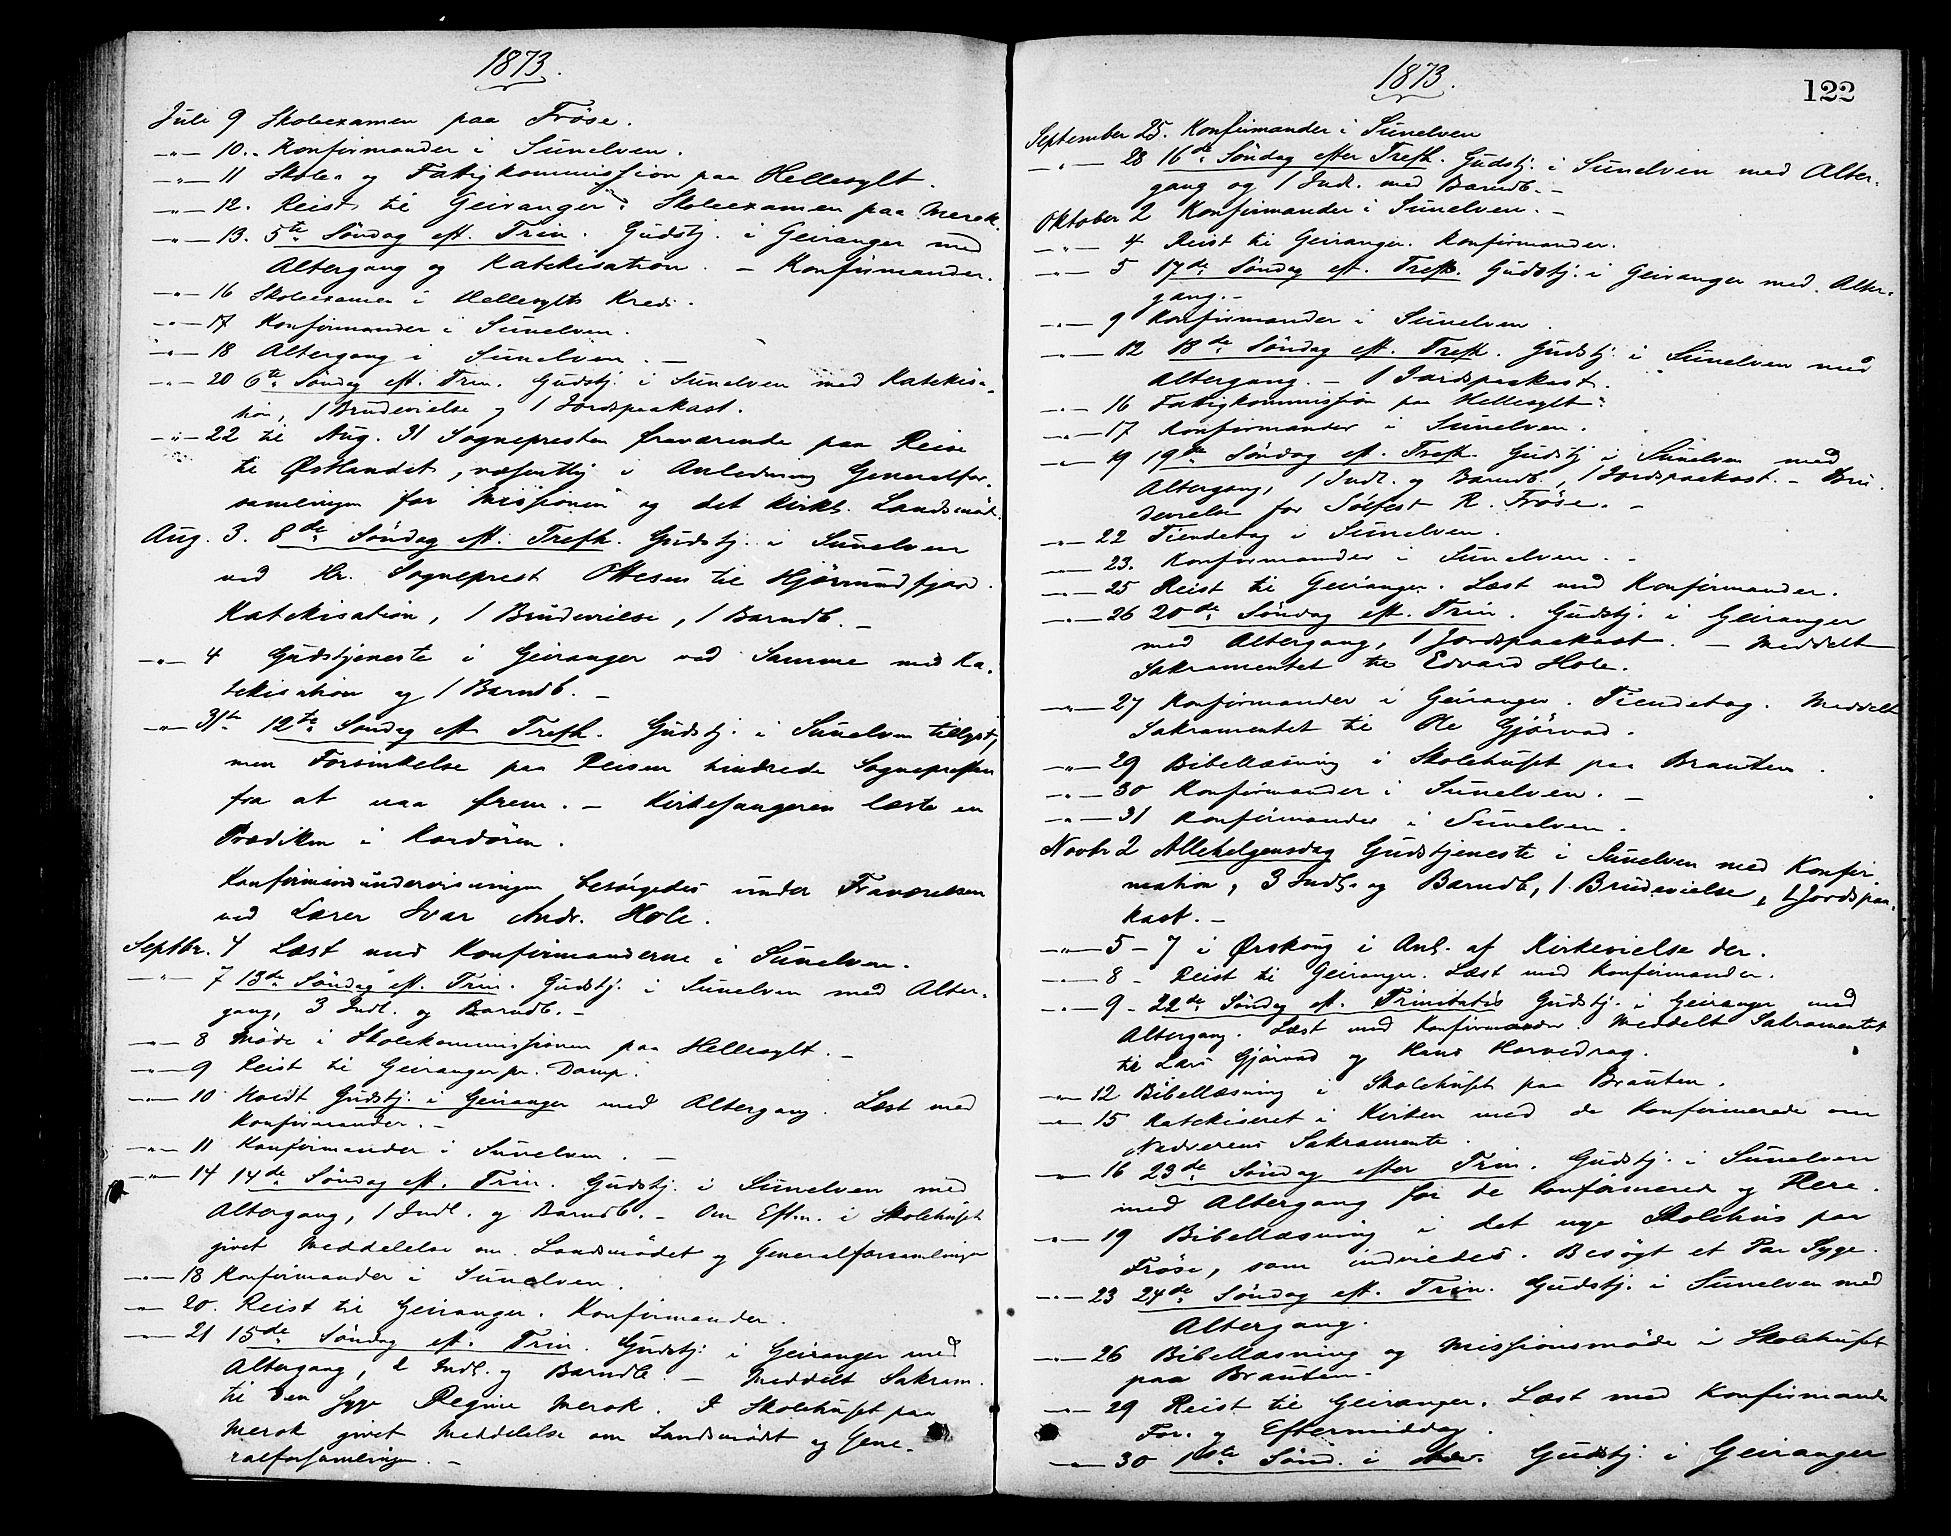 1873.
Juli 9 Skoleexamen paa Frøse.
—"— 10. Konfirmander i Sunelven.
—"— 11 Skole- og Fattigkommission paa Hellesylt.
—"— 12. Reist til Geiranger. Skoleexamen paa Merok.
—"— 13. 5te Søndag eft. Trin. Gudstj. i Geiranger med
Altergang og Katekisation. – Konfirmander.
—"— 16 Skoleexamen i Hellesylts Kreds.
—"— 17 Konfirmander i Sunelven.
—"— 18 Altergang i Sunelven. –
—"— 20 6te Søndag eft. Trin. Gudstj. i Sunelven med Katekisa-
tion, 1 Brudevielse og 1 Jordspaakast.
—"— 22 til Aug. 31 Sognepresten fraværende paa Reise
til Østlandet, væsentlig i Anledning Generalfor-
samlingen for Missionen og det kirkl. Landsmøde.
Aug. 3. 8de Søndag eft. Trefh. Gudstj. i Sunelven
ved Hr. Sogneprest Ottesen til Hjørundfjord.
Katekisation, 1 Brudevielse, 1 Barndb. –
—"— 4 Gudstjeneste i Geiranger ved Samme med Ka-
tekisation og 1 Barndb. –
—"— 31te 12te Søndag eft. Trefh. Gudstj. i Sunelven tillyst,
men Forsinkelse paa Reisen hindrede Sognepresten
fra at naa frem. – Kirkesangeren læste en
Prædiken i Kordøren.
Konfirmandundervisningen besørgedes under Fraværelsen
ved Lærer Ivar Andr. Hole.
Septbr. 4 Læst med Konfirmanderne i Sunelven.
—"— 7 13de Søndag eft. Trin. Gudstj. i Sunelven med Alter-
gang, 3 Indl. og Barndb. –
—"— 8 Møde i Skolekommissionen paa Hellesylt. –
—"— 9 Reist til Geiranger pr. Damp.
—"— 10 Holdt Gudstj. i Geiranger med Altergang. Læst med
Konfirmander. –
—"— 11 Konfirmander i Sunelven. –
—"— 14 14de Søndag eft. Trin. Gudstj. i Sunelven med
Altergang, 1 Indl. og Barndb. – Om Eftm. i Skolehuset
givet Meddelelse om Landsmødet og Generalforsamlingen
—"— 18 Konfirmander i Sunelven.
—"— 20. Reist til Geiranger. Konfirmander.
—"— 21 15de Søndag eft. Trin. Gudstj. i Geiranger med
Altergang, 2 Indl. og Barndb. – Meddelt Sakram.
til den syge Regine Merok. I Skolehuset paa
Merok givet Meddelelse om Landsmødet og Gene-
ralforsamlingen. –
1873.
122
September 25. Konfirmander i Sunelven
—"— 28 16de Søndag efter Trefh. Gudstj. i Sunelven med Alter-
gang og 1 Indl. med Barndb. –
Oktober 2 Konfirmander i Sunelven. –
—"— 4 Reist til Geiranger. Konfirmander.
—"— 5 17de Søndag eft. Trefh. Gudstj. i Geiranger med Alter-
gang. –
—"— 9 Konfirmander i Sunelven.
—"— 12 18de Søndag eft. Trefh. Gudstj. i Sunelven med
Altergang. – 1 Jordspaakast.
—"— 16 Fattigkommission paa Hellesylt.
—"— 17 Konfirmander i Sunelven.
—"— 19 19de Søndag eft. Trefh. Gudstj. i Sunelven med
Altergang, 1 Indl. og Barndb., 1 Jordspaakast. – Bru-
devielse for Sølfest R. Frøse. –
—"— 22 Tiendetag i Sunelven.
—"— 23. Konfirmander i Sunelven. –
—"— 25 Reist til Geiranger. Læst med Konfirmander.
—"— 26 20de Søndag eft. Trin. Gudstj. i Geiranger
med Altergang, 1 Jordspaakast. – Meddelt
Sakramentet til Edvard Hole.
—"— 27 Konfirmander i Geiranger. Tiendetag. Meddelt
Sakramentet til Ole Gjørvad.
—"— 29 Bibellæsning i Skolehuset paa Brauten.
—"— 30 Konfirmander i Sunelven. –
—"— 31 Konfirmander i Sunelven.
Novbr 2 Allehelgensdag Gudstjeneste i Sunelven med Konfir-
mation, 3 Indl. og Barndb, 1 Brudevielse, 1 Jordspaa-
kast. –
—"— 5 – 7 i Ørskoug i Anl. af Kirkevielse der.
—"— 8 – Reist til Geiranger. Læst med Konfirmander.
—"— 9 – 22de Søndag eft. Trinitatis Gudstj. i Geiranger med
Altergang. Læst med Konfirmander. Meddelt Sakramentet
til Lars Gjørvad og Hans
—"— 12 Bibellæsning i Skolehuset paa Brauten.
—"— 15 Katekiseret i Kirken med de Konfirmerede om
Nadverens Sakramente.
—"— 16 23de Søndag efter Trin. Gudstj. i Sunelven
med Altergang for de Konfirmerede og Flere.
—"— 19 Bibellæsning i det nye Skolehus paa
Frøse, som indviedes. Besøgt et Par Syge.
—"— 23 24de Søndag eft. Trin. Gudstj. i Sunelven med
Altergang.
—"— 26 Bibellæsning og Missionsmøde i Skolehuset
paa Brauten.
—"— 29 Reist til Geiranger. Læst med Konfirmander
For. og Eftermiddag.
—"— 30 1ste Sønd. i Adv. Gudstj. i Geiranger